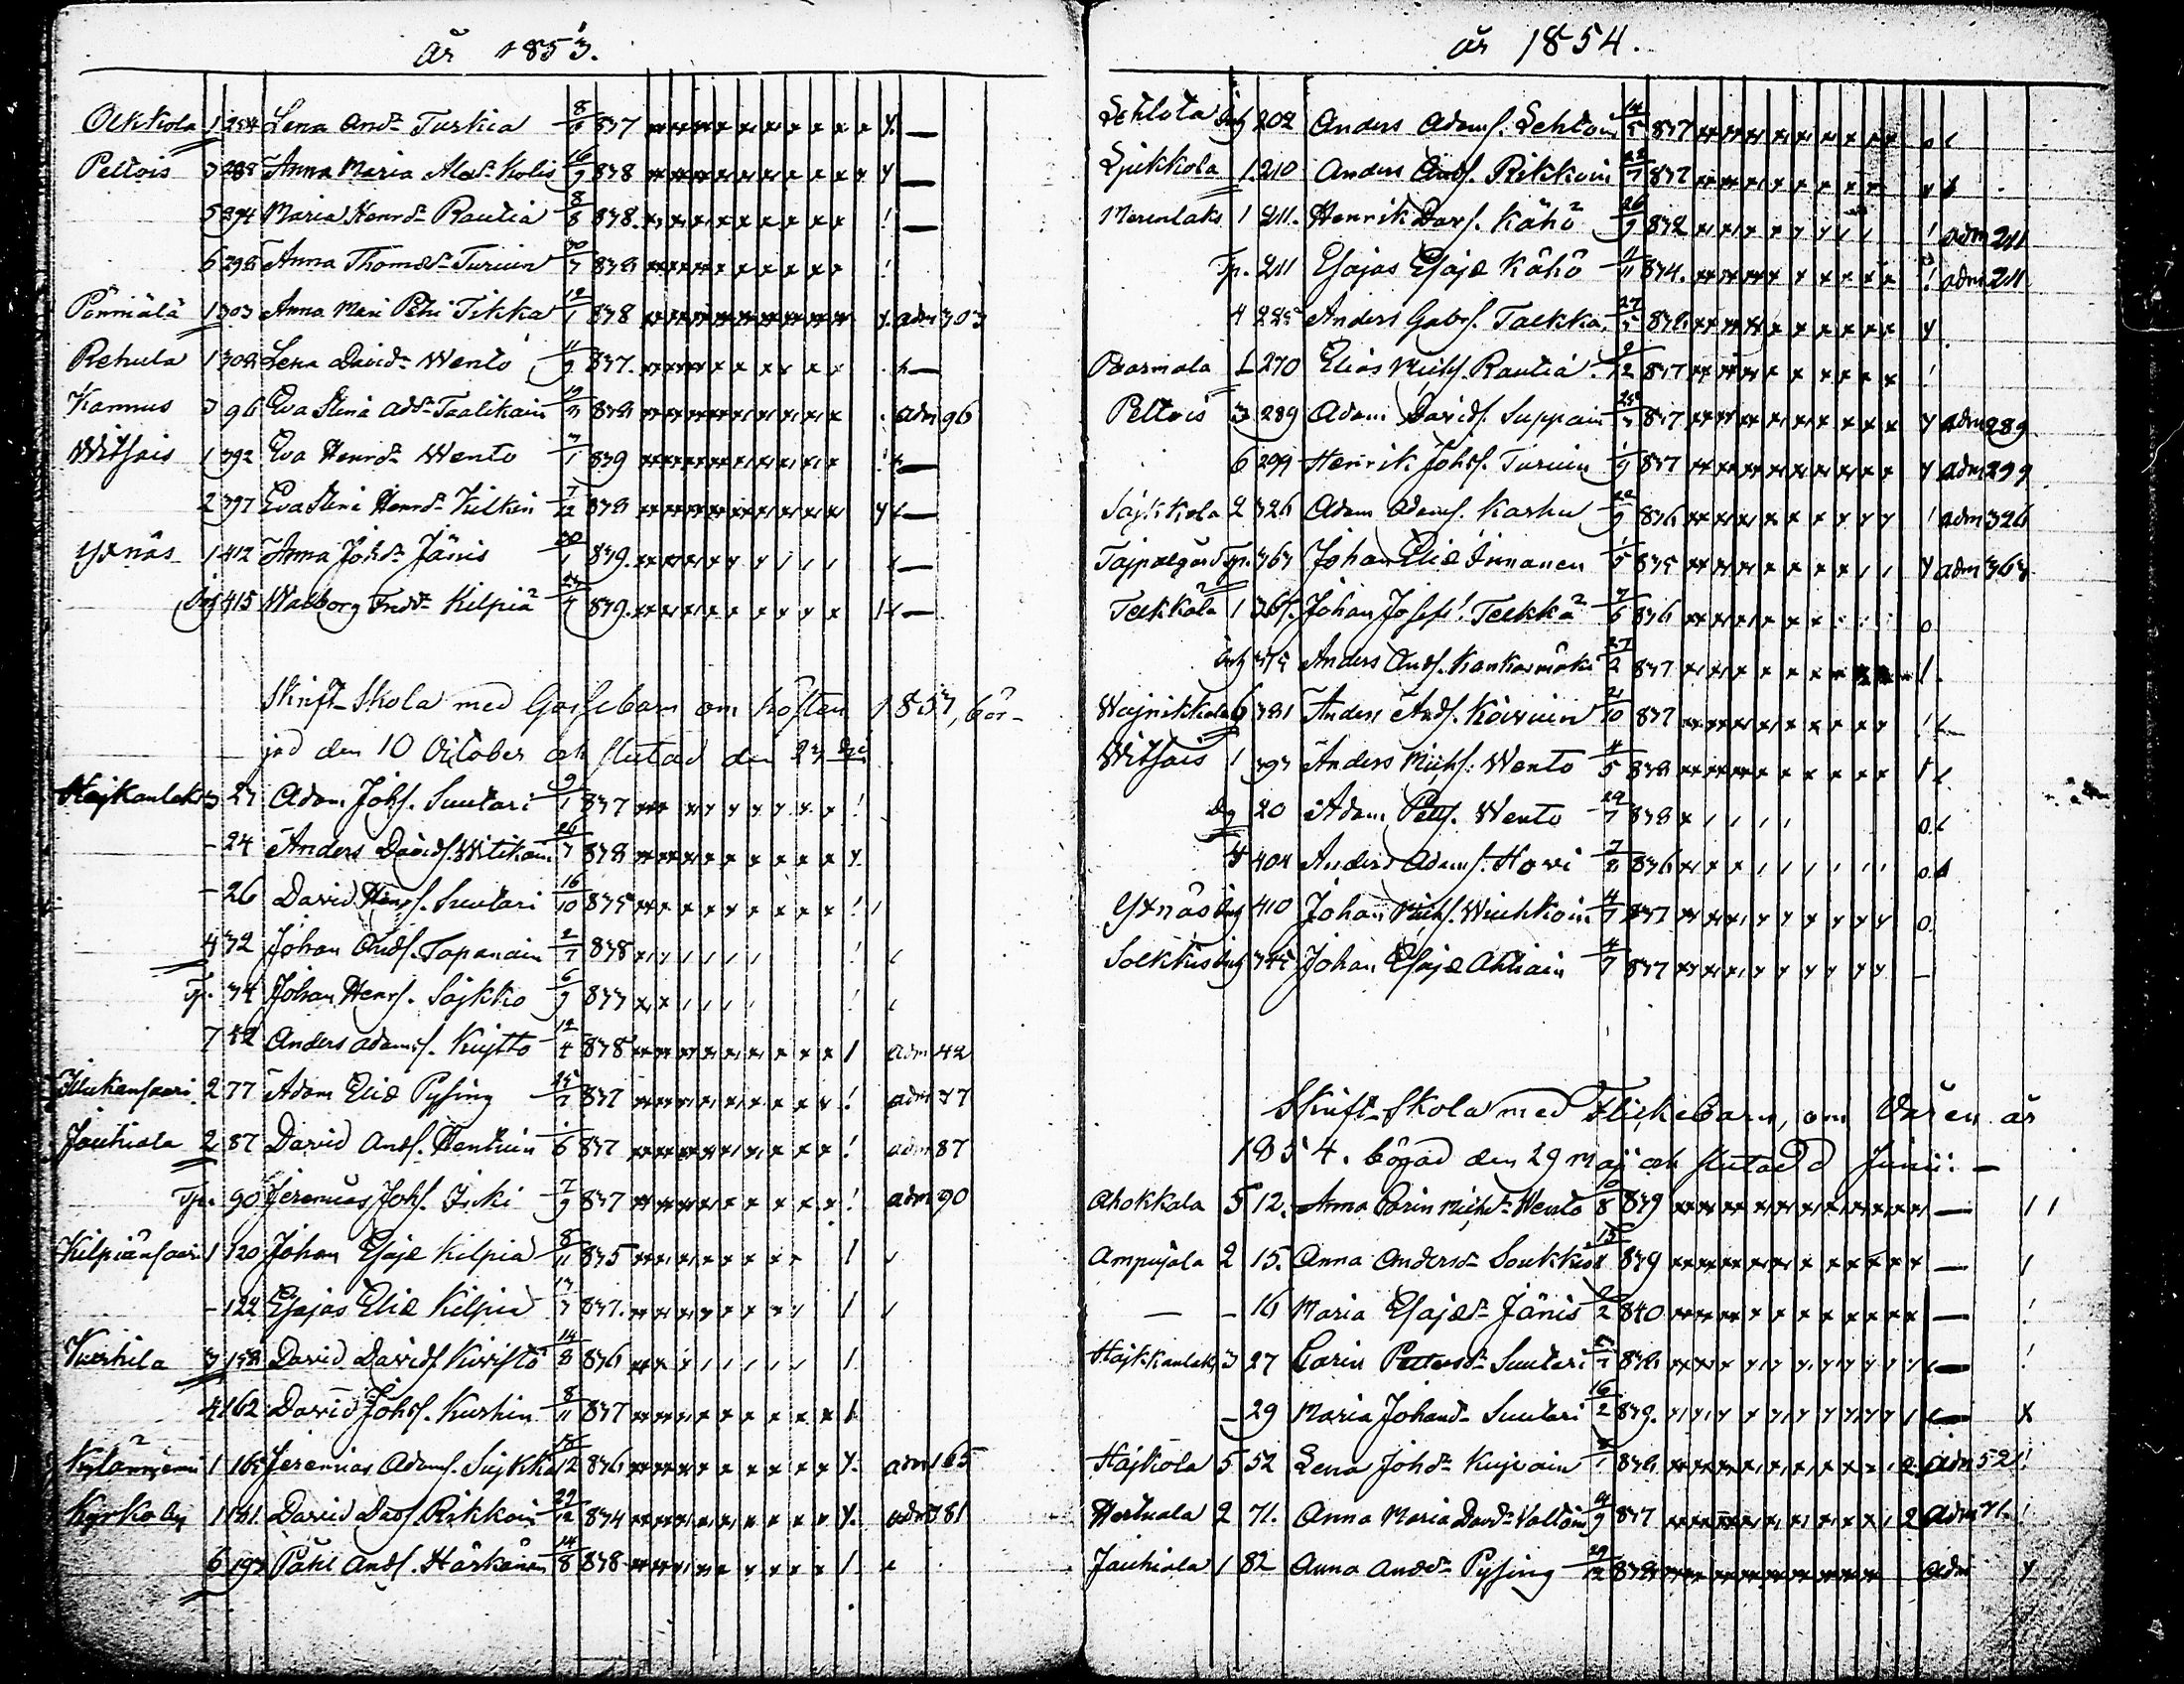 år 1853.
Olkkola 1 284 Lena And:dr Turkia 8/6 837 —
Peltois 3 288 Anna Maria Kolis 16/9 838 —
5 294 Maria Henr:dr Rautia 8/8 838. —
6 298 Anna Thomæ:dr Turuin 30/7 838
Pönniälä 1 303 Anna Mari Petri Tikka 12/1 838 adm 303
Rehula 1 308 Lena David:dr Wento 11/9 837. —
Kannus 3 96 Eva Stina Ad:dr Taalikain 838 adm 96
Witsais 1 392 Eva Henr:dr Wento 3/1 839 —
2 397 Eva Stina Henr:dr Kilkin 7/12 838 —
Yxnäs 1 412 Anna Joh:dr Jänis 30/1 839. —
Inh 415 Walborg Fred:dr Kilpiä 839. —
Skrift-Skola med Gossebarn om hösten 1853, bör-
jad den 10 October och slutad den 23 d:o
Hajkanlaks 3 23 Adam Johs. Suutari 9/1 837
- 24 Anders Davids. Witikain 26/7 838
- 26 David Henrs. Suutari 16/10 835
4 32 Johan Ands. Tapanain 2/7 838
Tp. 34 Johan Henrs. Sajkko 6/9 833
7 42 Anders Adams. Kujtto 12/4 838 adm 42
Ilukansaari 2 77 Adam Eliæ Pysing 25/7 837 adm 77
Jauhiala 2 87 David Ands. Henttuin 1/6 837 adm 87
Tp. 90 Jeremias Johs. Inki 7/9 837 adm 90
Kilpiänsaari 1 120 Johan Esajæ Kilpiä 8/11 835
- 122 Esajas Eliæ Kilpiä 13/7 837.
Kurhila 3 158 David Davids Kuristo 14/8 836
4 162 David Johs. Kurhin 8/11 837
Kylänniemi 1 165 Jeremias Adams. Sujkka 836 adm 165
Kyrkoby 1 181. David Davs. Rikkoin 22/12 834 adm 181
6 193 Påhl Ands. Härkänen 14/8 838
år 1854.
Lehtola Inh 202 Anders Adams. Lehtoin 14/5 837
Ljukkola 1. 210 Anders Ands. Rikkoin 22/7 837
Merenlaks 1 211. Henrik Davs. Kähö 26/9 832 adm 211
Tp. 211 Esajas Esajæ Kähö 4/11 834. adm 211
4 225 Anders Gabrs. Talkka 27/5 838.
Parmala 1 270 Elias Michs. Rautia 837
Peltois 3 289 Adam Davids. Suppain 837 adm 289
6 299 Henrik Johs. Turuin 1/9 837 adm 299
Sajkkola 2 326 Adam Adams. Karhu 22/9 836 adm 326
Tajpalgård Tp. 363 Johan Eliæ Immanen 1/5 835 adm 363
Telkkälä 1 367. Johan Josefs. Telkkä 7/6 836
Inh 375 Anders Ands. Kankarmäki 27/2 837
Wajnikkala 6 381 Anders Ands. Kärnuin 21/10 837
Witsais 1 393 Anders Michs. Wento 4/5 838
Dg 20 Adam Petts. Wento 29/7 838
4 404 Anders Adams. Howi 7/2 836
Yxnäs Inh 410 Johan Michs. Wiuhkoin 4/7 837
Solkkis Inh 345 Johan Esajæ Ahtiain 4/7 837
Skrift-Skola med Flickebarn, om Våren år
1854. bögad den 29 maj och slutad d Junii: —
Ahokkala 5 12. Anna Carin Mich:dr Wento 10/8 839 —
Ampujala 2 15. Anna Anders:dr Soukkis 839 —
— - 16 Maria Esajæ:dr Jänis 2/2 840 —
Hajkkanlaks 3 27 Carin Petters:dr Suutari 838 —
- 29 Maria Johans:dr Suutari 16/2 839. —
Hajkola 5 52 Lena Joh:dr Kujwain 838 2 adm 52
Hertuala 2 71. Anna Maria Dav:dr Waltoin 837 2 adm 71.
Jauhiala 1 82 Anna And:dr Pysing 29/12 838 adm